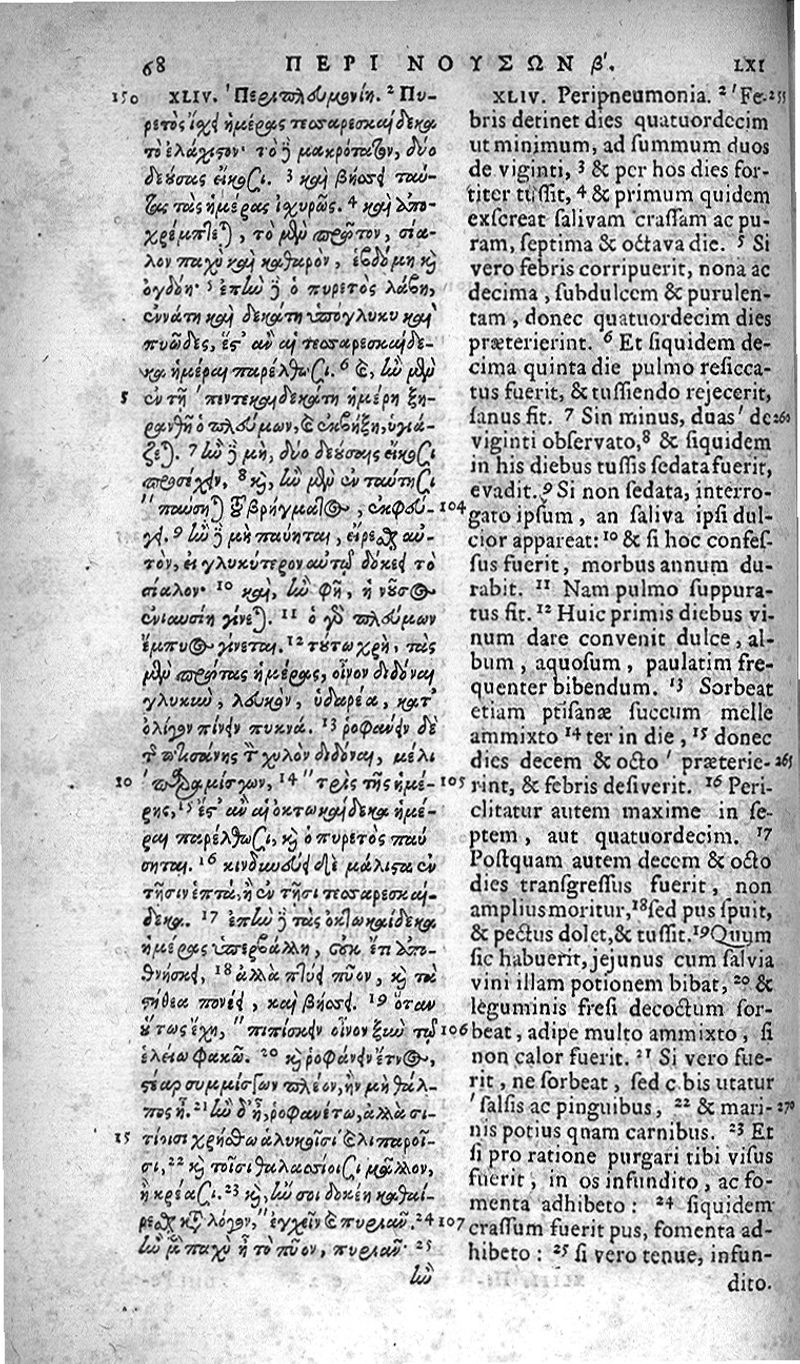 68 ΠΕΡΙ ΝΟΥΣΩΝ β'. LXI
150 XLIV. 'Περιπλευμονίη. 2 Πυ-
ρετὸς ἴχει ἡμέρας τεσσαρεσκαίδεκα
τὸ ἐλάχιστον· τὸ δὲ μακρότατον, δύο
δεούσας εἴκοσι. 3 καὶ βήσσει ταύ-
τας τὰς ἡμέρας ἰχυρῶς. 4 καὶ ἀπο-
χρέμπτεται, τὸ μὲν πρῶτον, σία-
λον παχὺ καὶ καθαρὸν, ἑβδόμη καὶ
ὀγδόη· 5 ἐπὴν δὲ ὁ πυρετὸς λάβη,
ἐννάτη καὶ δεκάτη ὑπόγλυκυ καὶ
πυῶδες, ἔς τ' ἂν αἱ τεσσαρεσκαίδε-
κα ἡμέραι παρέλθωσι. 6 καὶ, ἢν μὲν
5 ἐν τῇ 'πεντεκαιδεκάτη ἡμέρη ξη-
ρανθῇ ὁ πλεύμων, καὶ ἐκβήξη, ὑγιά-
ζεται. 7 ἢν δὲ μὴ, δύο δεούσης εἴκοσι
προσέχειν, 8 καὶ, ἢν μὲν ἐν ταύτησι
"παύσηται τοῦ βρήγματος, ἐκφεύ- 104
γει. 9 ἢν δὲ μὴ παύηται, εἴρεσθαι αὐ-
τὸν, εἰ γλυκύτερον αὐτῷ δοκέει τὸ
σίαλον· 10 καὶ, ἢν φῇ, ἡ νοῦσος
ἐνιαυσίη γίνεται. 11 ὁ γὰρ πλεύμων
ἔμπυος γίνεται. 12 τούτω χρὴ, τὰς
μὲν πρώτας ἡμέρας, οἶνον διδόναι
γλυκὺν, λευκὸν, ὑδαρέα, κατ'
ὀλίγον πίνειν πυκνά. 13 ῥοφάνειν δὲ
τῆς πτισάνης τὸν χυλὸν διδόναι, μέλι
10 'παραμίσγων, 14 "τρὶς τῆς ἡμέ- 105
ρης, 15 ἔς τ' ἂν αἱ ὀκτωκαίδεκα ἡμέ-
ραι παρέλθωσι, καὶ ὁ πυρετὸς παύ
σηται. 16 κινδυνεύει δὲ μάλιστα ἐν
τῇσιν ἑπτὰ, ἢ ἐν τῇσι τεσσαρεσκαί-
δεκα. 17 ἐπὴν δὲ τὰς ὀκτωκαίδεκα
ἡμέρας ὑπερβάλλη, οὐκ ἔτι ἀπο-
θνήσκει, 18 ἀλλὰ πτύει πῦον, καὶ τὰ
στήθεα πονέει, καὶ βήσσει. 19 ὅταν
οὕτως ἔχη, "πιπίσκειν οἶνον ξὺν τῷ 106
ἐλείω φακῶ. 20 καὶ ῥοφάνειν ἔτνος,
στέαρ συμμίσγων πλέον, ἢν μὴ θάλ-
πος ᾖ. 21 ἢν δ' ᾖ, ῥοφανέτω, ἀλλὰ σι-
15 τίοισι χρήσθω ἁλυκοῖσι καὶ λιπαροῖ-
σι, 22 καὶ τοῖσι θαλασσίοισι μᾶλλον,
ἢ κρέασι. 23 καὶ, ἢν σοι δοκέη καθαί-
ρεσθαι κατὰ λόγον, "ἐγχεῖν καὶ πυριᾶν. 24 107
ἢν μὲν παχὺ ᾖ τὸ πῦον, πυριᾶν· 25
ἢν
XLIV. Peripneumonia. 2 'Fe- 255
bris detinet dies quatuordecim
ut minimum, ad summum duos
de viginti, 3 & per hos dies for-
titer tussit, 4 & primum quidem
exscreat salivam crassam ac pu-
ram, septima & octava die. 5 Si
vero febris corripuerit, nona ac
decima, subdulcem & purulen-
tam, donec quatuordecim dies
præterierint. 6 Et siquidem de-
cima quinta die pulmo resicca-
tus fuerit, & tussiendo rejecerit,
sanus fit. 7 Sin minus, duas' de 260
viginti observato, 8 & siquidem
in his diebus tussis sedata fuerit,
evadit. 9 Si non sedata, interro-
gato ipsum, an saliva ipsi dul-
cior appareat: 10 & si hoc confes-
sus fuerit, morbus annum du-
rabit. 11 Nam pulmo suppura-
tus fit. 12 Huic primis diebus vi-
num dare convenit dulce, al-
bum, aquosum, paulatim fre-
quenter bibendum. 13 Sorbeat
etiam ptisanæ succum melle
ammixto 14 ter in die, 15 donec
dies decem & octo' præterie- 265
rint, & febris desiverit. 16 Peri-
clitatur autem maxime in se-
ptem, aut quatuordecim. 17
Postquam autem decem & octo
dies transgressus fuerit, non
amplius moritur, 18 sed pus spuit,
& pectus dolet, & tussit. 19 Quum
sic habuerit, jejunus cum salvia
vini illam potionem bibat, 20 &
leguminis fresi decoctum sor-
beat, adipe multo ammixto, si
non calor fuerit. 21 Si vero fue-
rit, ne sorbeat, sed c bis utatur
'salsis ac pinguibus, 22 & mari- 270
nis potius quam carnibus. 23 Et
si pro ratione purgari tibi visus
fuerit, in os infundito, ac fo-
menta adhibeto: 24 siquidem
crassum fuerit pus, fomenta ad-
hibeto: 25 si vero tenue, infun-
dito.